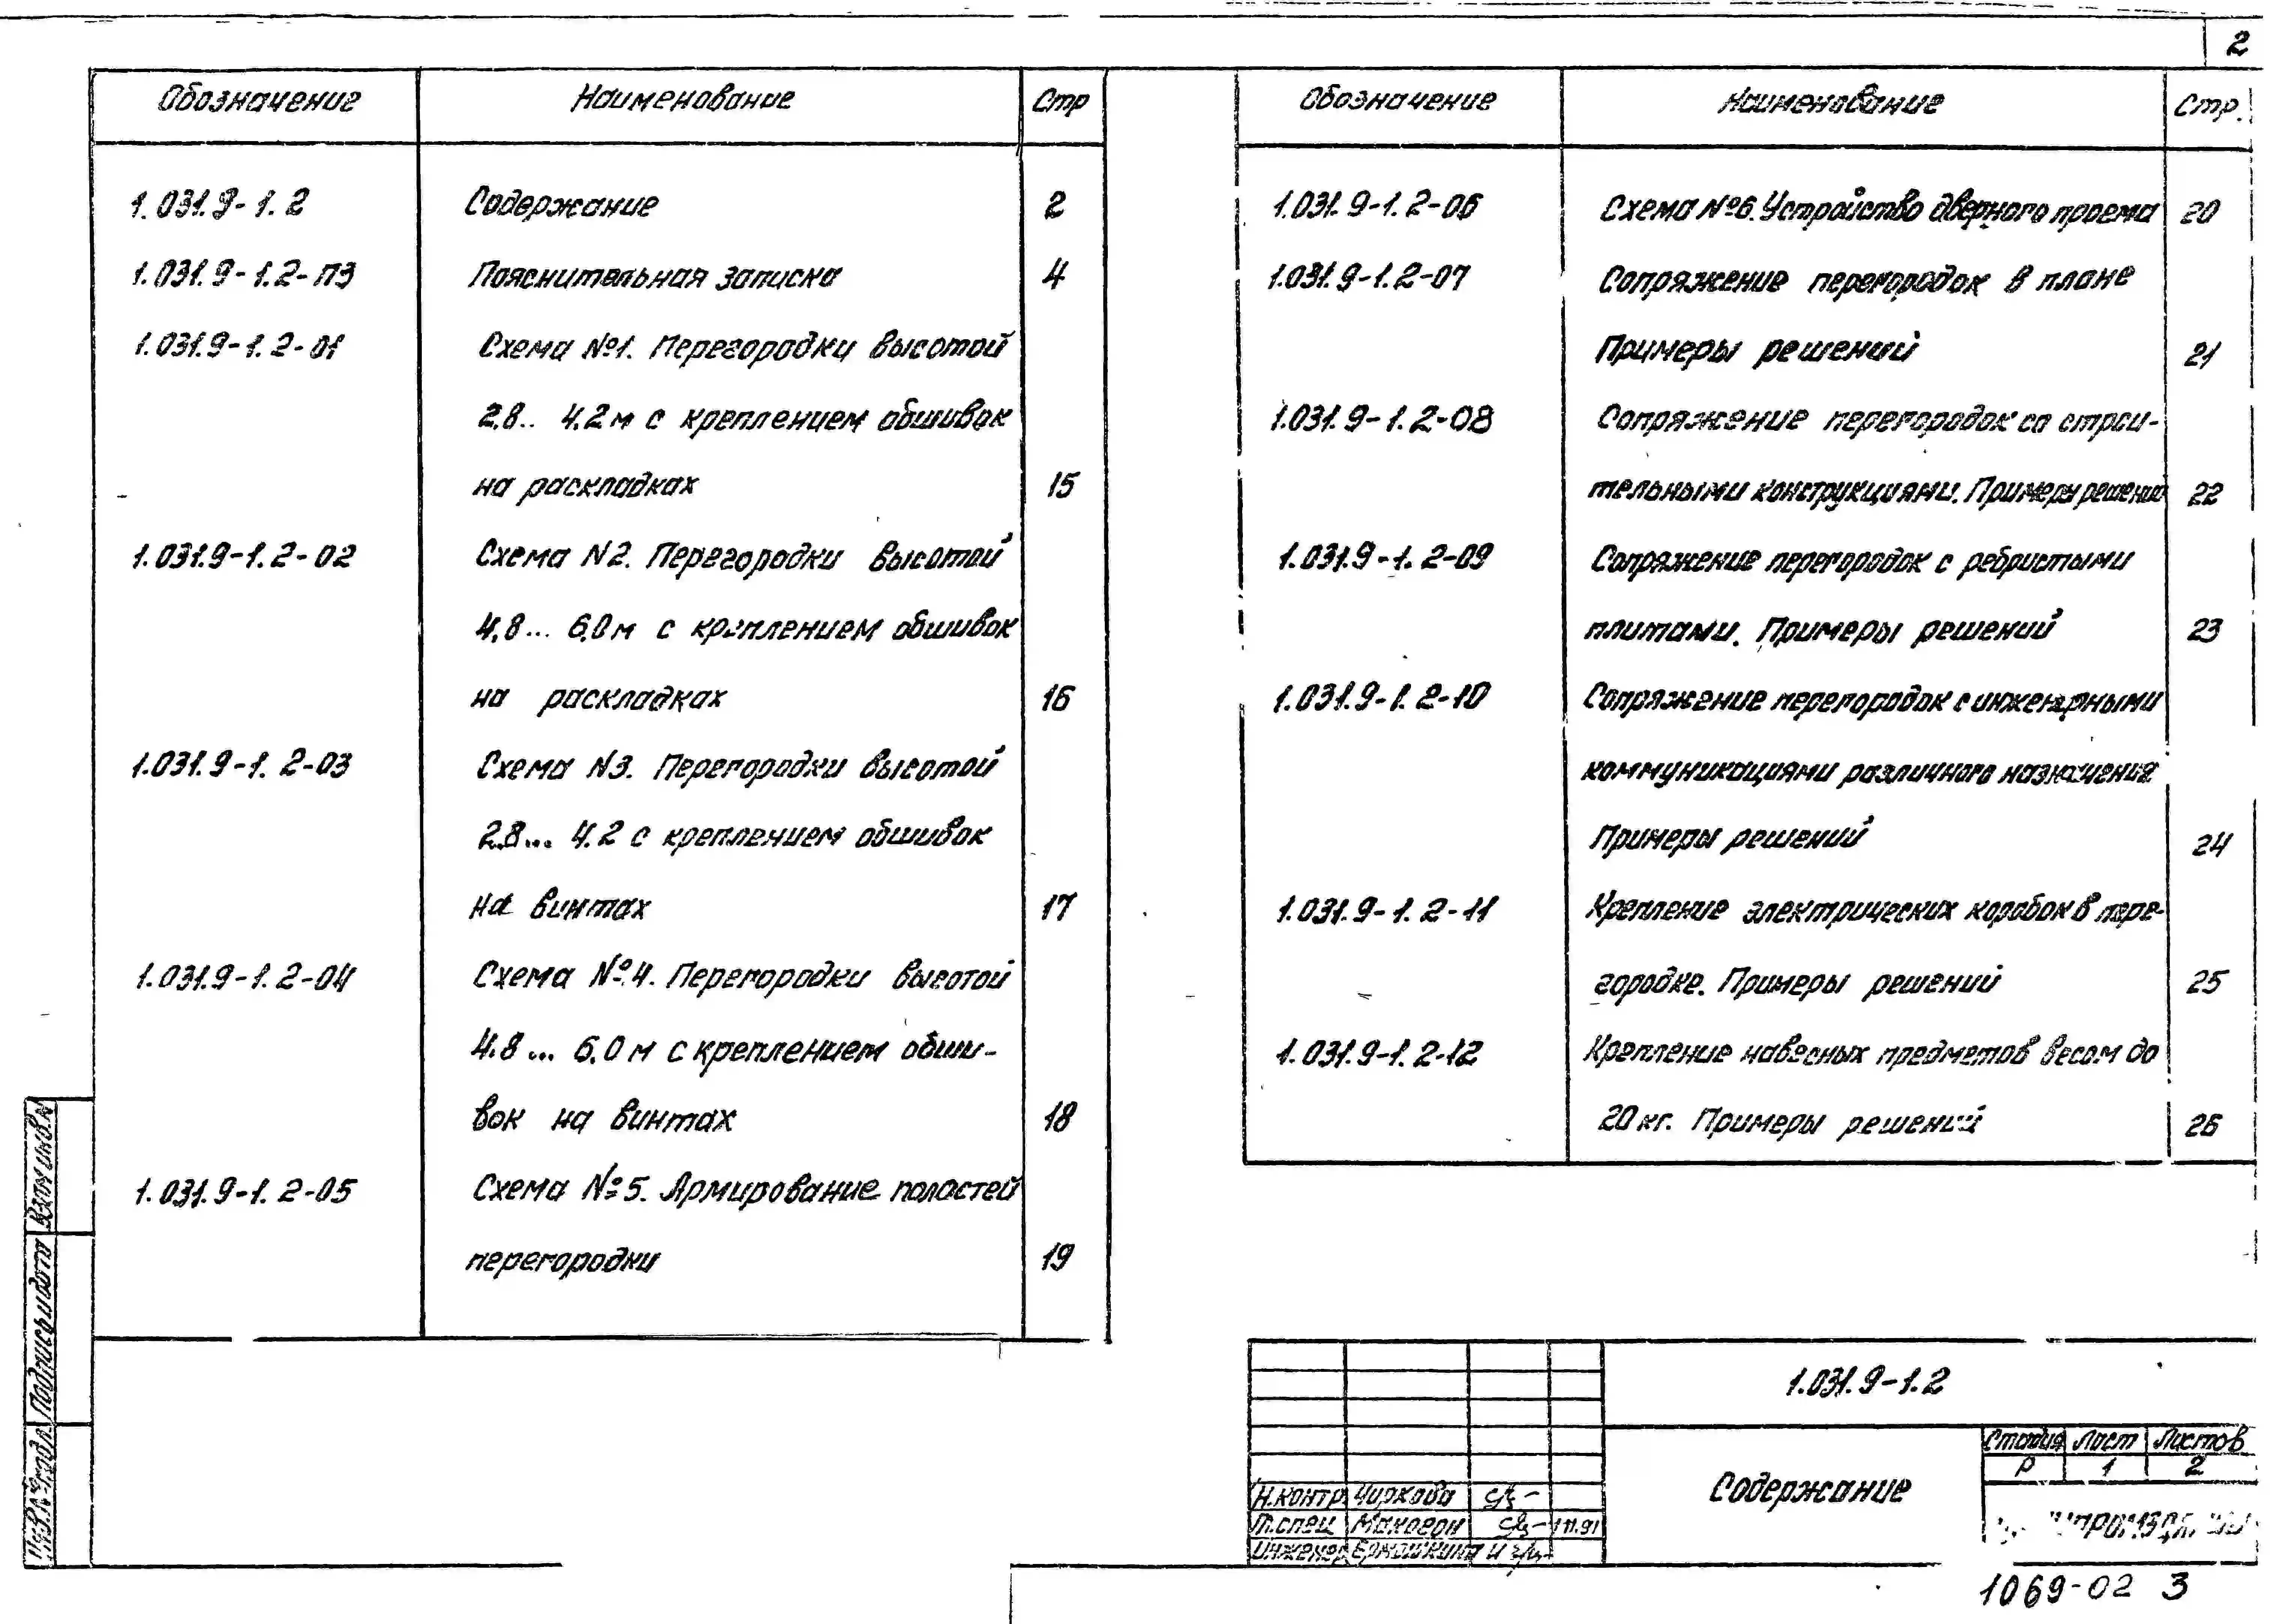 2
Обозначение Наименование Стр
1.031.9-1.2 Содержание 2
1.031.9-1.2-ПЗ Пояснительная записка 4
1.031.9-1.2-01 Схема №1. Перегородки высотой
2.8.. 4.2м с креплением обшивок
на раскладках 15
1.031.9-1.2-02 Схема N2. Перегородки высотой
4,8... 6,0м с креплением обшивок
на раскладках 16
1.031.9-1.2-03 Схема N3. Перегородки высотой
2.8... 4.2 с креплением обшивок
на винтах 17
1.031.9-1.2-04 Схема №4. Перегородки высотой
4.8... 6.0м с креплением обши-
вок на винтах 18
1.031.9-1.2-05 Схема №5. Армирование полостей
перегородки 19
Обозначение Наименование Стр.
1.031.9-1.2-06 Схема №6. Устройство дверного проема 20
1.031.9-1.2-07 Сопряжение перегородок в плане
Примеры решений 21
1.031.9-1.2-08 Сопряжение перегородок со строи-
тельными конструкциями. Примеры решений 22
1.031.9-1.2-09 Сопряжение перегородок с ребристыми
плитами. Примеры решений 23
1.031.9-1.2-10 Сопряжение перегородок с инженерными
коммуникациями различного назначения
Примеры решений 24
1.031.9-1.2-11 Крепление электрических коробок в пере-
городке. Примеры решений 25
1.031.9-1.2-12 Крепление навесных предметов весом до
20 кг. Примеры решений 26
Взам инв.N
Подпись и дата
Инв.N подл
1.031.9-1.2
Содержание
Стадия Лист Листов
Р 1 2
Н.контр Чиркова
Т.спец Макогон 11.91
Инженер Ермошкина
1069-02 3